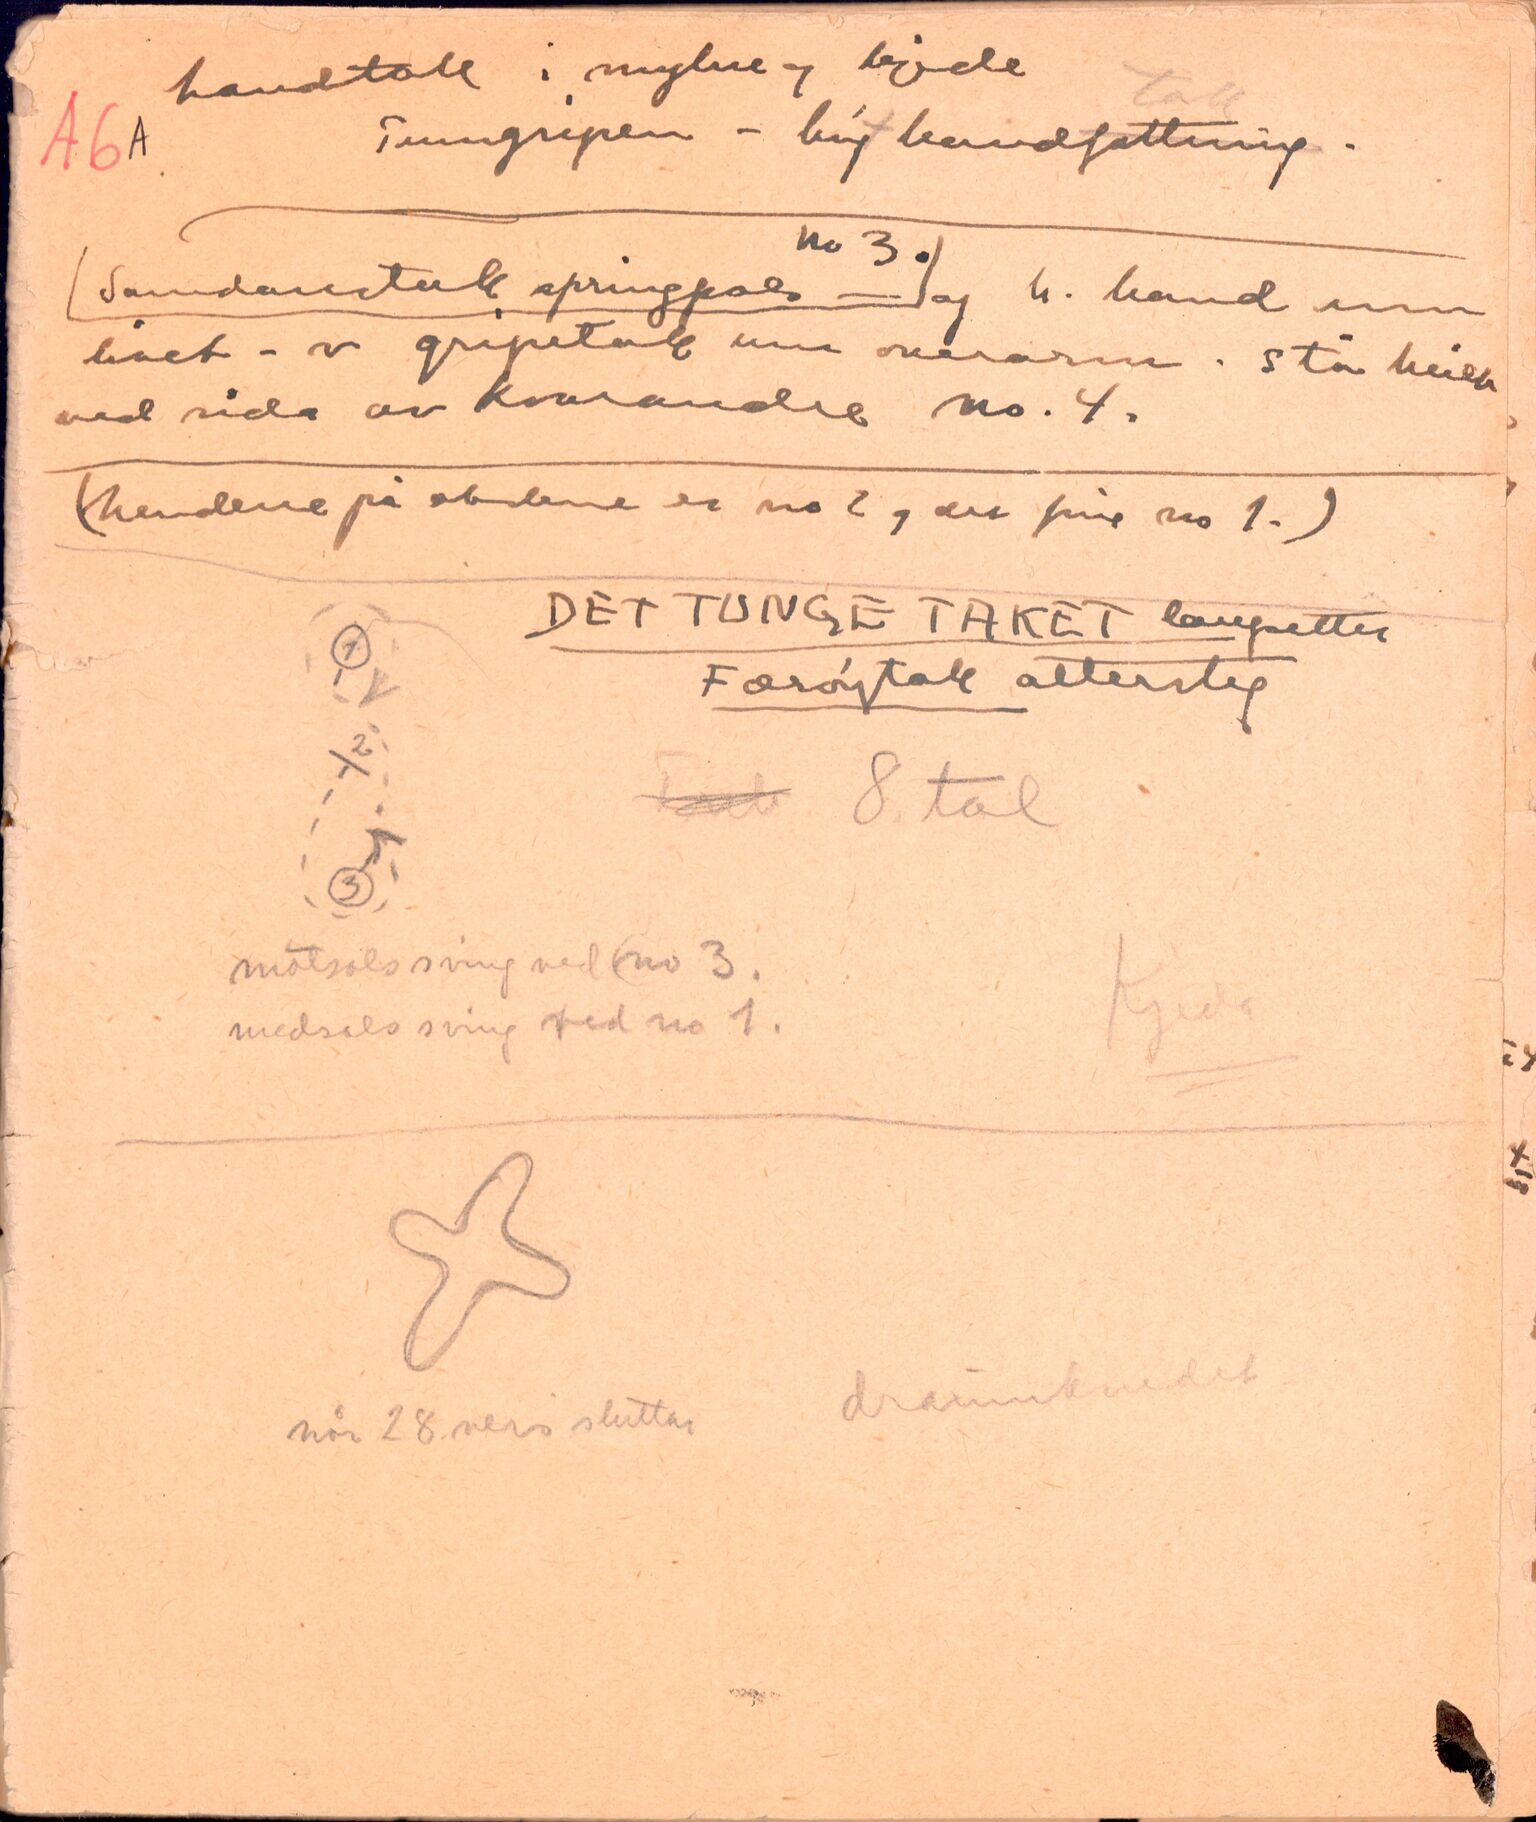 handtak i mylne og kjede
tak
A6A Tumgripen - høgt handfattning.
no 3.
(Samdanstak springpols —) og h. hand um
livet - v gripetak um overarm. Stå
ved sida av kvarandre no. 4.
(hendene på skuldrene er no 2, det fine no 1.)
1
DET TUNGE TAKET
Færøytak attersteg
2
8 tal
3
motsols sving ved (no 3.
medsols sving ved no 1.
Kjeda
når 28 vers sluttar
draumkvedet